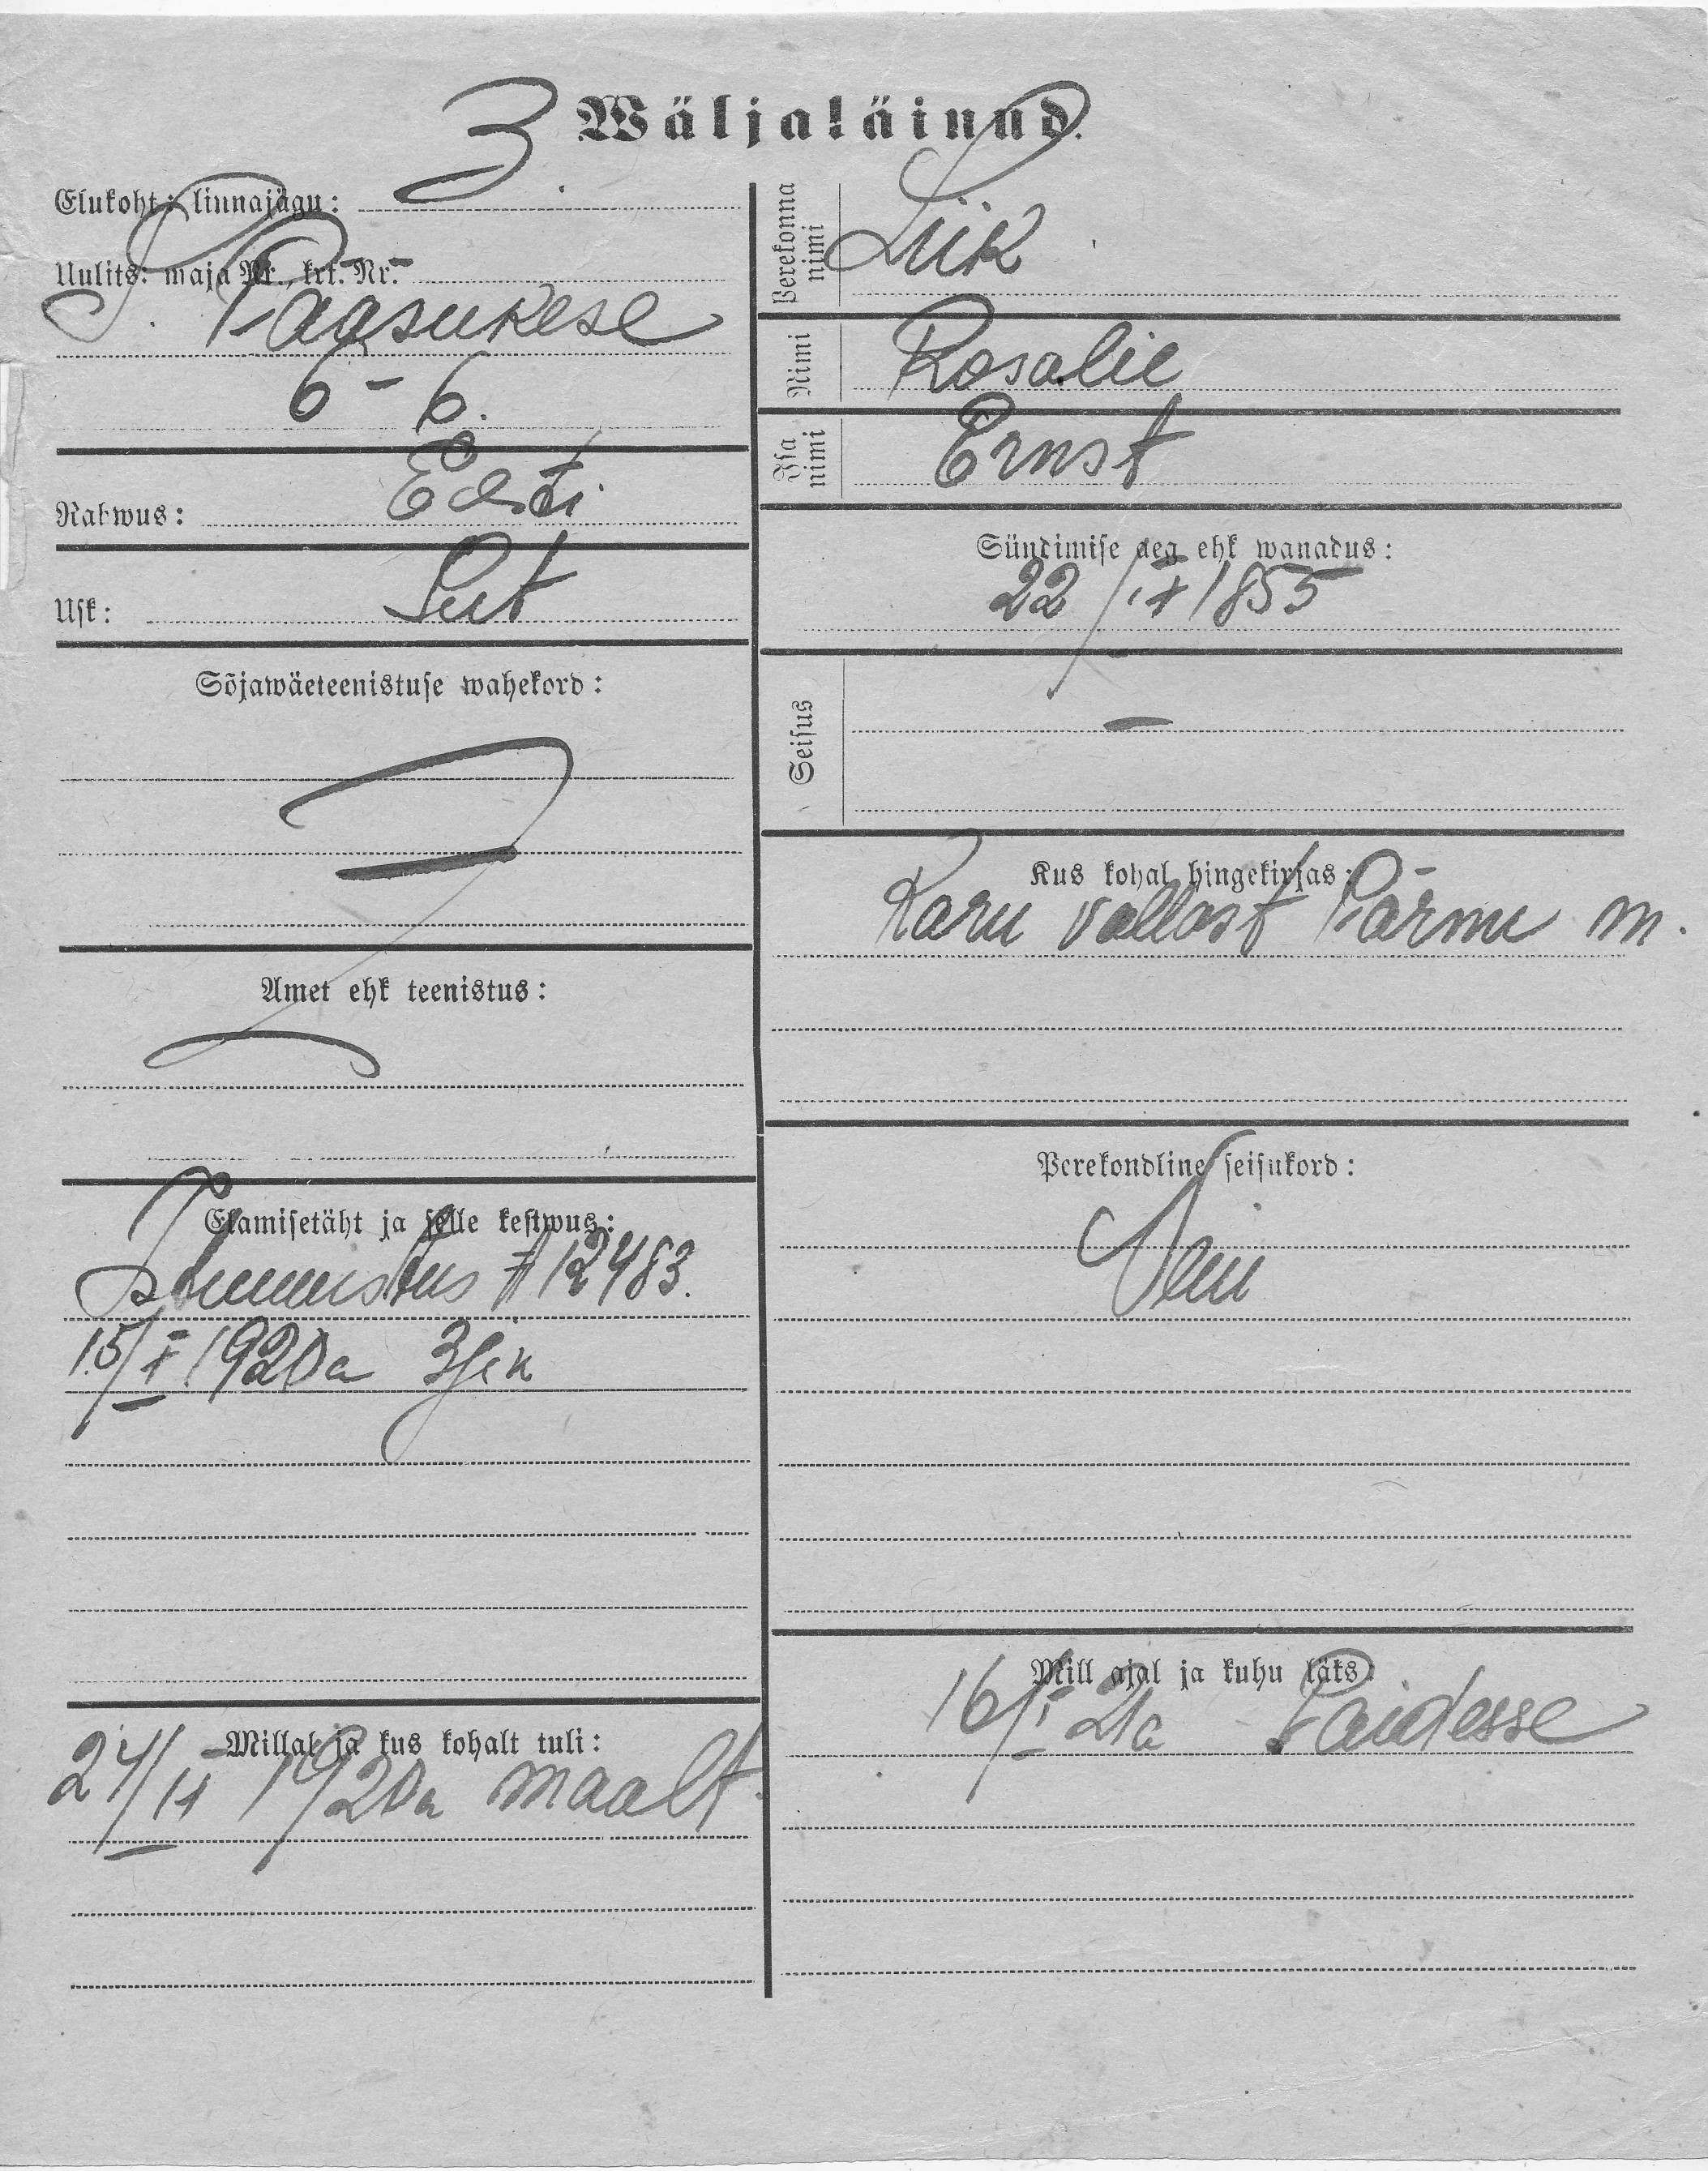 Wäljaläinud.
Elukoht: linnajagu: 3.
Uulits: maja Nr., krt. Nr.
S. Pääsukese
6 - 6.
Rahwus: Eesti
Usk: Lut
Sõjawäeteenistuse wahekord:
Amet ehk teenistus:
Elamisetäht ja selle kestwus:
Tunnistus № 12483.
15/X 1920a 3 jsk
Millal ja kus kohalt tuli:
24/II 1920a maalt.
Perekonna nimi Liik
Nimi Rosalie
Isa nimi Ernst
Sündimise aeg ehk wanadus:
22/IX 1855
Seisus -
Kus kohal hingekirjas:
Käru vallast Pärnu m.
Perekondline seisukord:
Mill ajal ja kuhu läks:
16/I 21a Paidesse